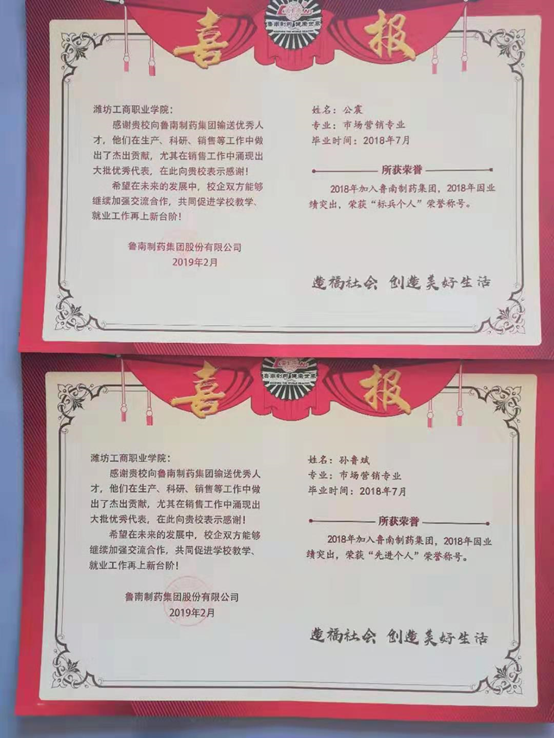 喜 报
鲁南制药 健康世界
潍坊工商职业学院：
感谢贵校向鲁南制药集团输送优秀人
才，他们在生产、科研、销售等工作中做
出了杰出贡献，尤其在销售工作中涌现出
大批优秀代表，在此向贵校表示感谢！
希望在未来的发展中，校企双方能够
继续加强交流合作，共同促进学校教学、
就业工作再上新台阶！
鲁南制药集团股份有限公司
2019年2月
姓名：公震
专业：市场营销专业
毕业时间：2018年7月
所获荣誉
2018年加入鲁南制药集团，2018年因业
绩突出，荣获“标兵个人”荣誉称号。
造福社会 创造美好生活
喜 报
鲁南制药 健康世界
潍坊工商职业学院：
感谢贵校向鲁南制药集团输送优秀人
才，他们在生产、科研、销售等工作中做
出了杰出贡献，尤其在销售工作中涌现出
大批优秀代表，在此向贵校表示感谢！
希望在未来的发展中，校企双方能够
继续加强交流合作，共同促进学校教学、
就业工作再上新台阶！
鲁南制药集团股份有限公司
2019年2月
姓名：孙鲁斌
专业：市场营销专业
毕业时间：2018年7月
所获荣誉
2018年加入鲁南制药集团，2018年因业
绩突出，荣获“先进个人”荣誉称号。
造福社会 创造美好生活